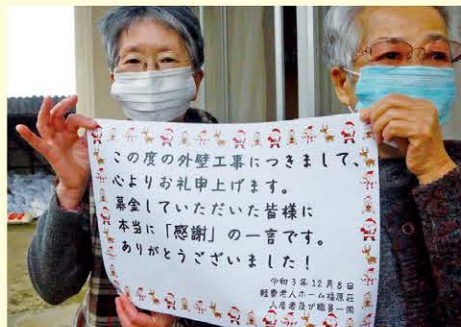 この度の外壁工事につきまして、
心よりお礼申上げます。
募金していただいた皆様に
本当に「感謝」の一言です。
ありがとうございました！
令和3年12月8日
軽費老人ホーム福原荘
入居者及び職員一同